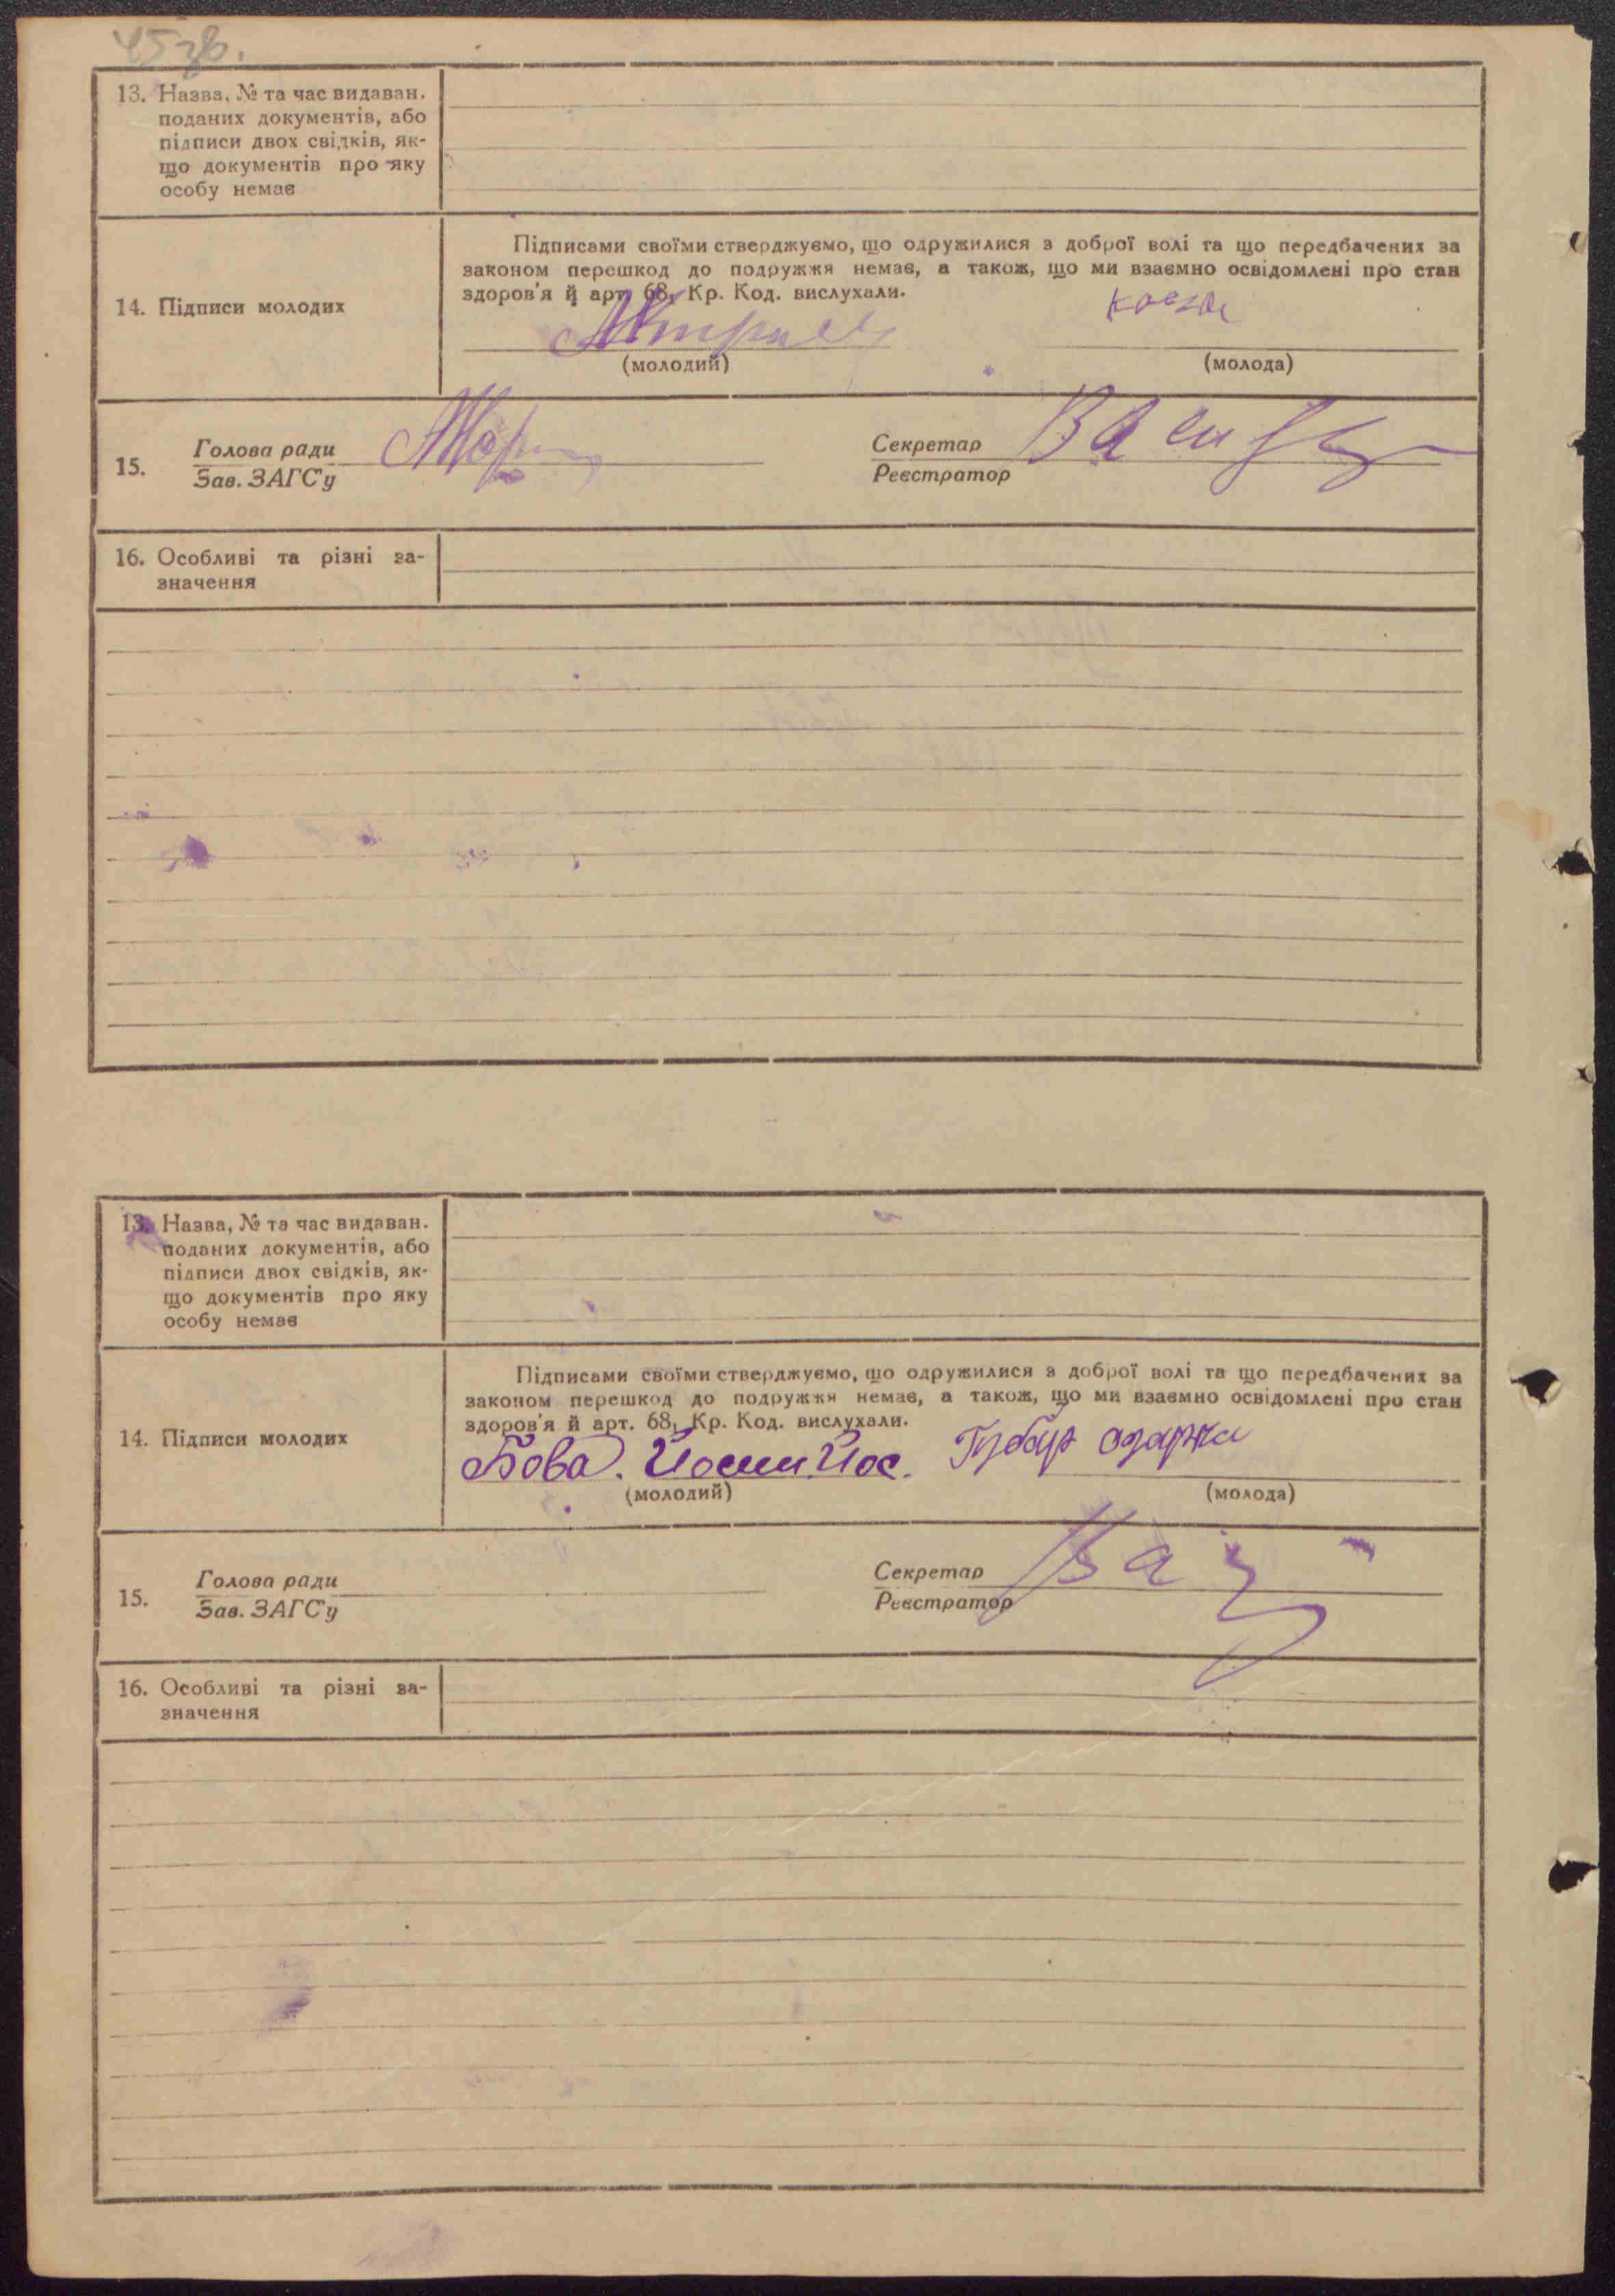 45зв.
13. Назва, № та час видаван.
поданих документів, або
підписи двох свідків, як-
що документів про яку
особу немає
Підписами своїми стверджуємо, що одружилися з доброї волі та що передбачених за
законом перешкод до подружжя немає, а також, що ми взаємно освідомлені про стан
здоров'я й арт. 68, Кр. Код. вислухали.
14. Підписи молодих
(молодий) (молода)
15. Голова ради Секретар
Зав. ЗАГС'у Реєстратор
16. Особливі та різні за-
значення
13. Назва, № та час видаван.
поданих документів, або
підписи двох свідків, як-
що документів про яку
особу немає
Підписами своїми стверджуємо, що одружилися з доброї волі та що передбачених за
законом перешкод до подружжя немає, а також, що ми взаємно освідомлені про стан
здоров'я й арт. 68, Кр. Код. вислухали.
14. Підписи молодих
Бова. Йосип. Йос. одарка
(молодий) (молода)
15. Голова ради Секретар
Зав. ЗАГС'у Реєстратор
16. Особливі та різні за-
значення